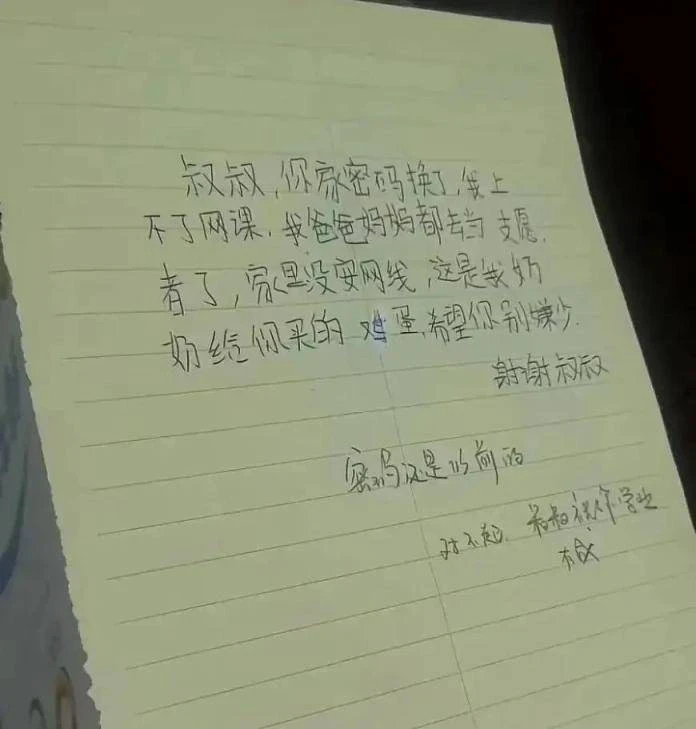 叔叔,你家密码换了,我上
不了网课.我爸爸妈妈都去当 支愿.
者了,家里没安网线,这是我奶
奶给你买的 鸡蛋,希望你别嫌少.
谢谢叔叔
密码还是以前的
对不起. 叔叔祝你学业